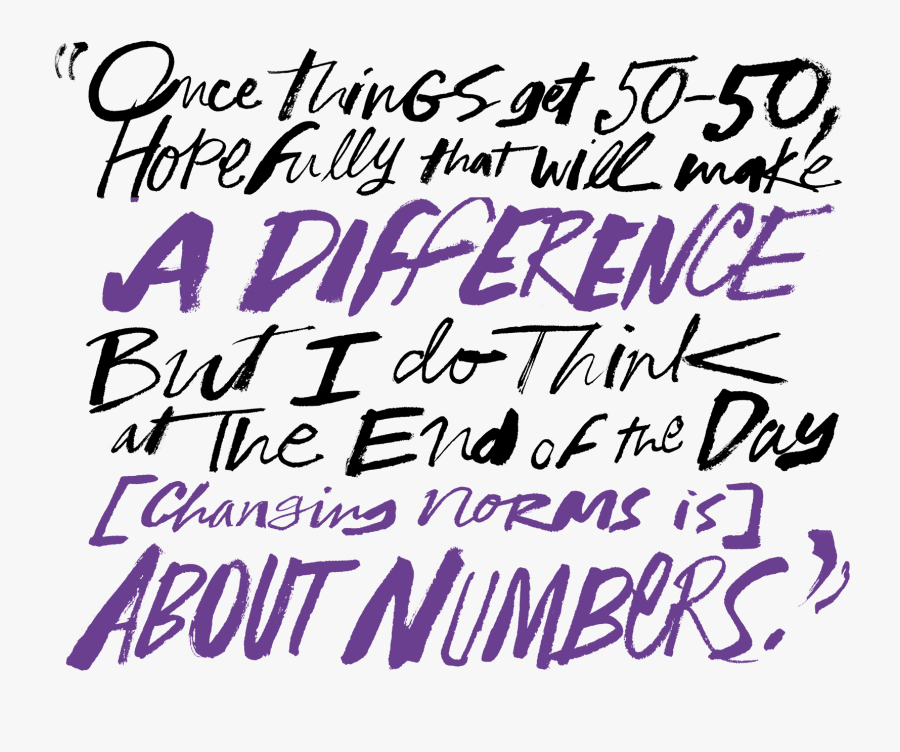 “Once things get 50-50,
Hopefully that will make
A DIFFERENCE
But I do Think
at The End of the Day
[Changing norms is]
ABOUT NUMBERS.”